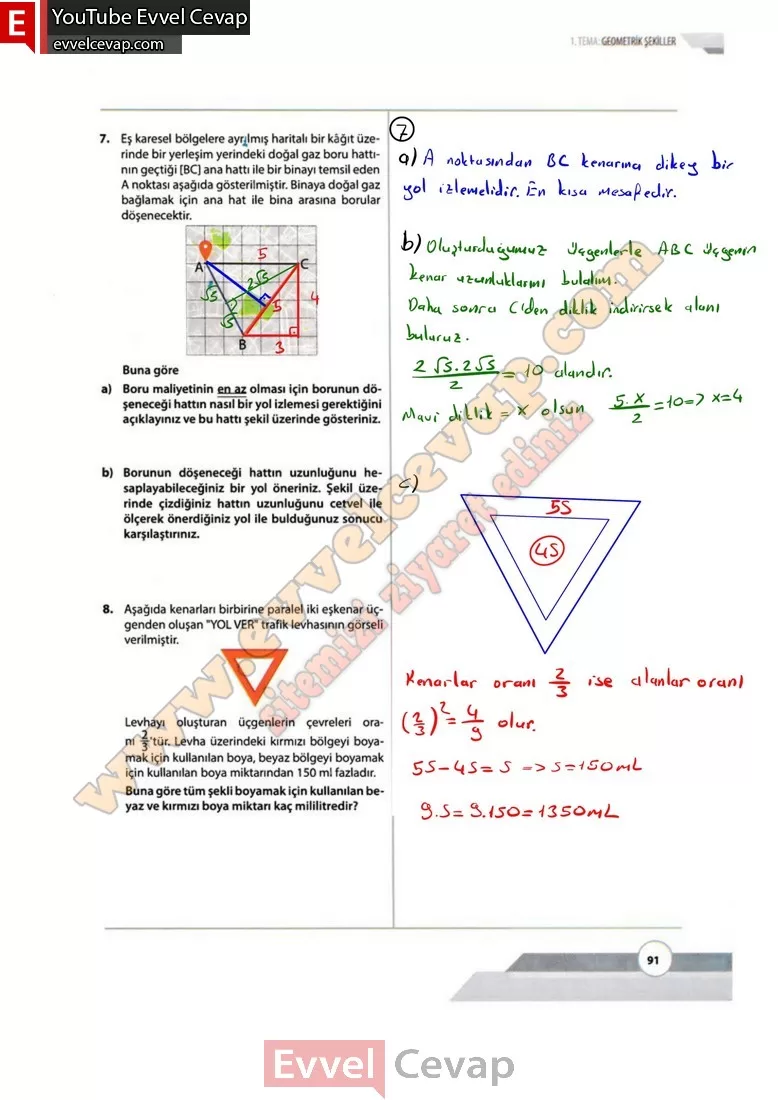 E YouTube Evvel Cevap
evvelcevap.com
1. TEMA: GEOMETRİK ŞEKİLLER
7. Eş karesel bölgelere ayrılmış haritalı bir kâğıt üze-
rinde bir yerleşim yerindeki doğal gaz boru hattı-
nın geçtiği [BC] ana hattı ile bir binayı temsil eden
A noktası aşağıda gösterilmiştir. Binaya doğal gaz
bağlamak için ana hat ile bina arasına borular
döşenecektir.
5
A
C
√5
2√5
5
4
√5
B
3
Buna göre
a) Boru maliyetinin en az olması için borunun dö-
şeneceği hattın nasıl bir yol izlemesi gerektiğini
açıklayınız ve bu hattı şekil üzerinde gösteriniz.
b) Borunun döşeneceği hattın uzunluğunu he-
saplayabileceğiniz bir yol öneriniz. Şekil üze-
rinde çizdiğiniz hattın uzunluğunu cetvel ile
ölçerek önerdiğiniz yol ile bulduğunuz sonucu
karşılaştırınız.
8. Aşağıda kenarları birbirine paralel iki eşkenar üç-
genden oluşan "YOL VER" trafik levhasının görseli
verilmiştir.
Levhayı oluşturan üçgenlerin çevreleri ora-
nı 2/3'tür. Levha üzerindeki kırmızı bölgeyi boya-
mak için kullanılan boya, beyaz bölgeyi boyamak
için kullanılan boya miktarından 150 ml fazladır.
Buna göre tüm şekli boyamak için kullanılan be-
yaz ve kırmızı boya miktarı kaç mililitredir?
7
a) A noktasından BC kenarına dikey bir
yol izlemelidir. En kısa mesafedir.
b) Oluşturduğumuz üçgenlerle ABC üçgenin
kenar uzunluklarını bulalım.
Daha sonra C'den diklik indirirsek alanı
buluruz.
2√5.2√5/2 = 10 alandır.
Mavi diklik = x olsun 5.x/2 = 10 => x=4
c)
5S
4S
Kenarlar oranı 2/3 ise alanlar oranı
(2/3)² = 4/9 olur.
5S-4S=S => S=150mL
9.S=9.150=1350mL
www.evvelcevap.com
sitemizi ziyaret ediniz
91
Evvel Cevap